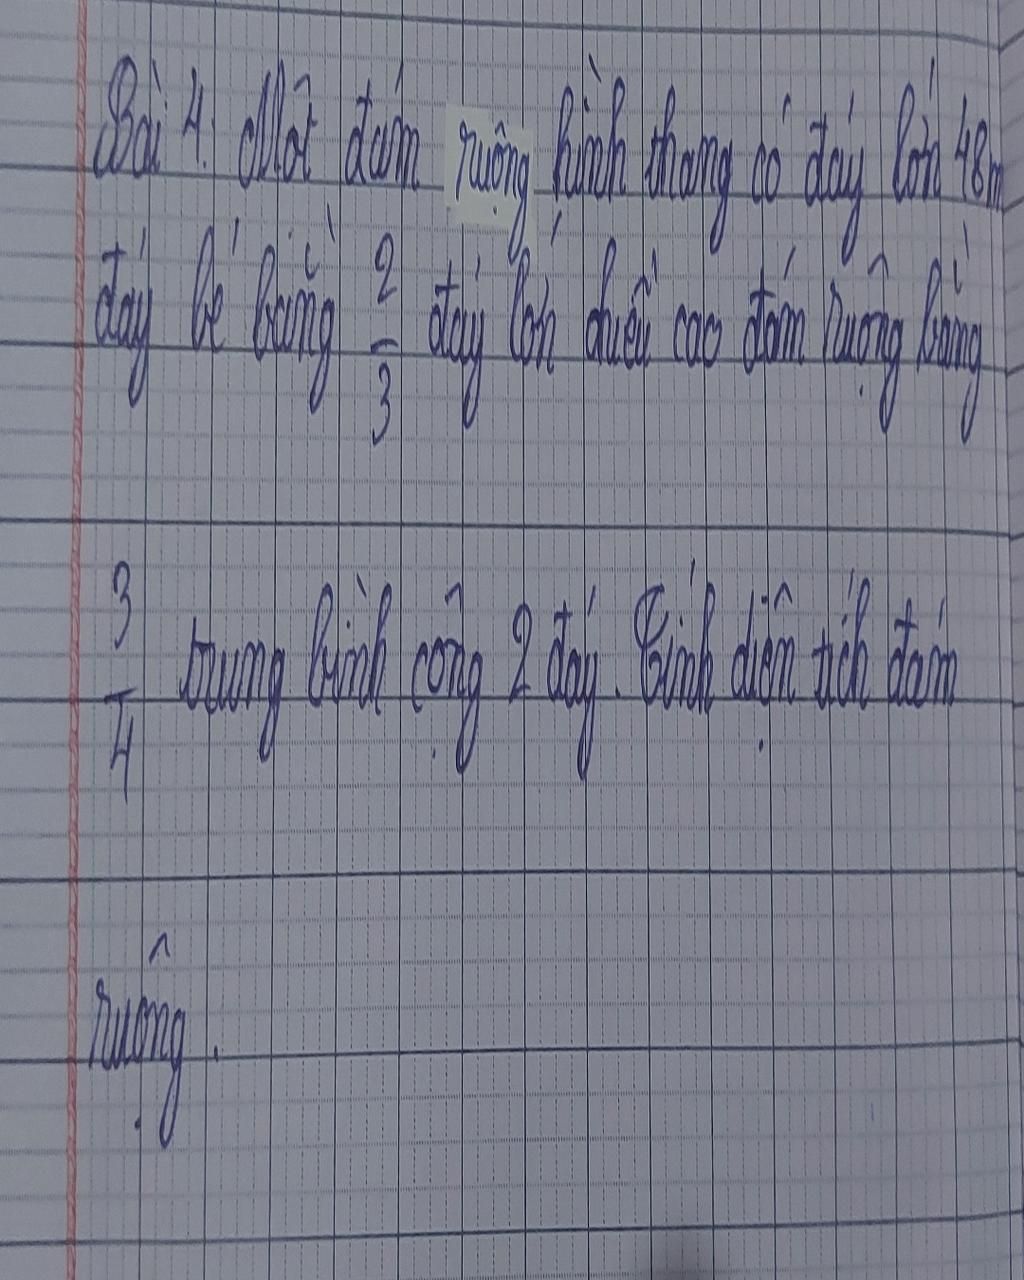 Bài 4. Một đám ruộng hình thang có đáy lớn 48m
đáy bé bằng 2/3 đáy lớn chiều cao đám ruộng bằng
3/4 trung bình cộng 2 đáy. Tính diện tích đám
ruộng.